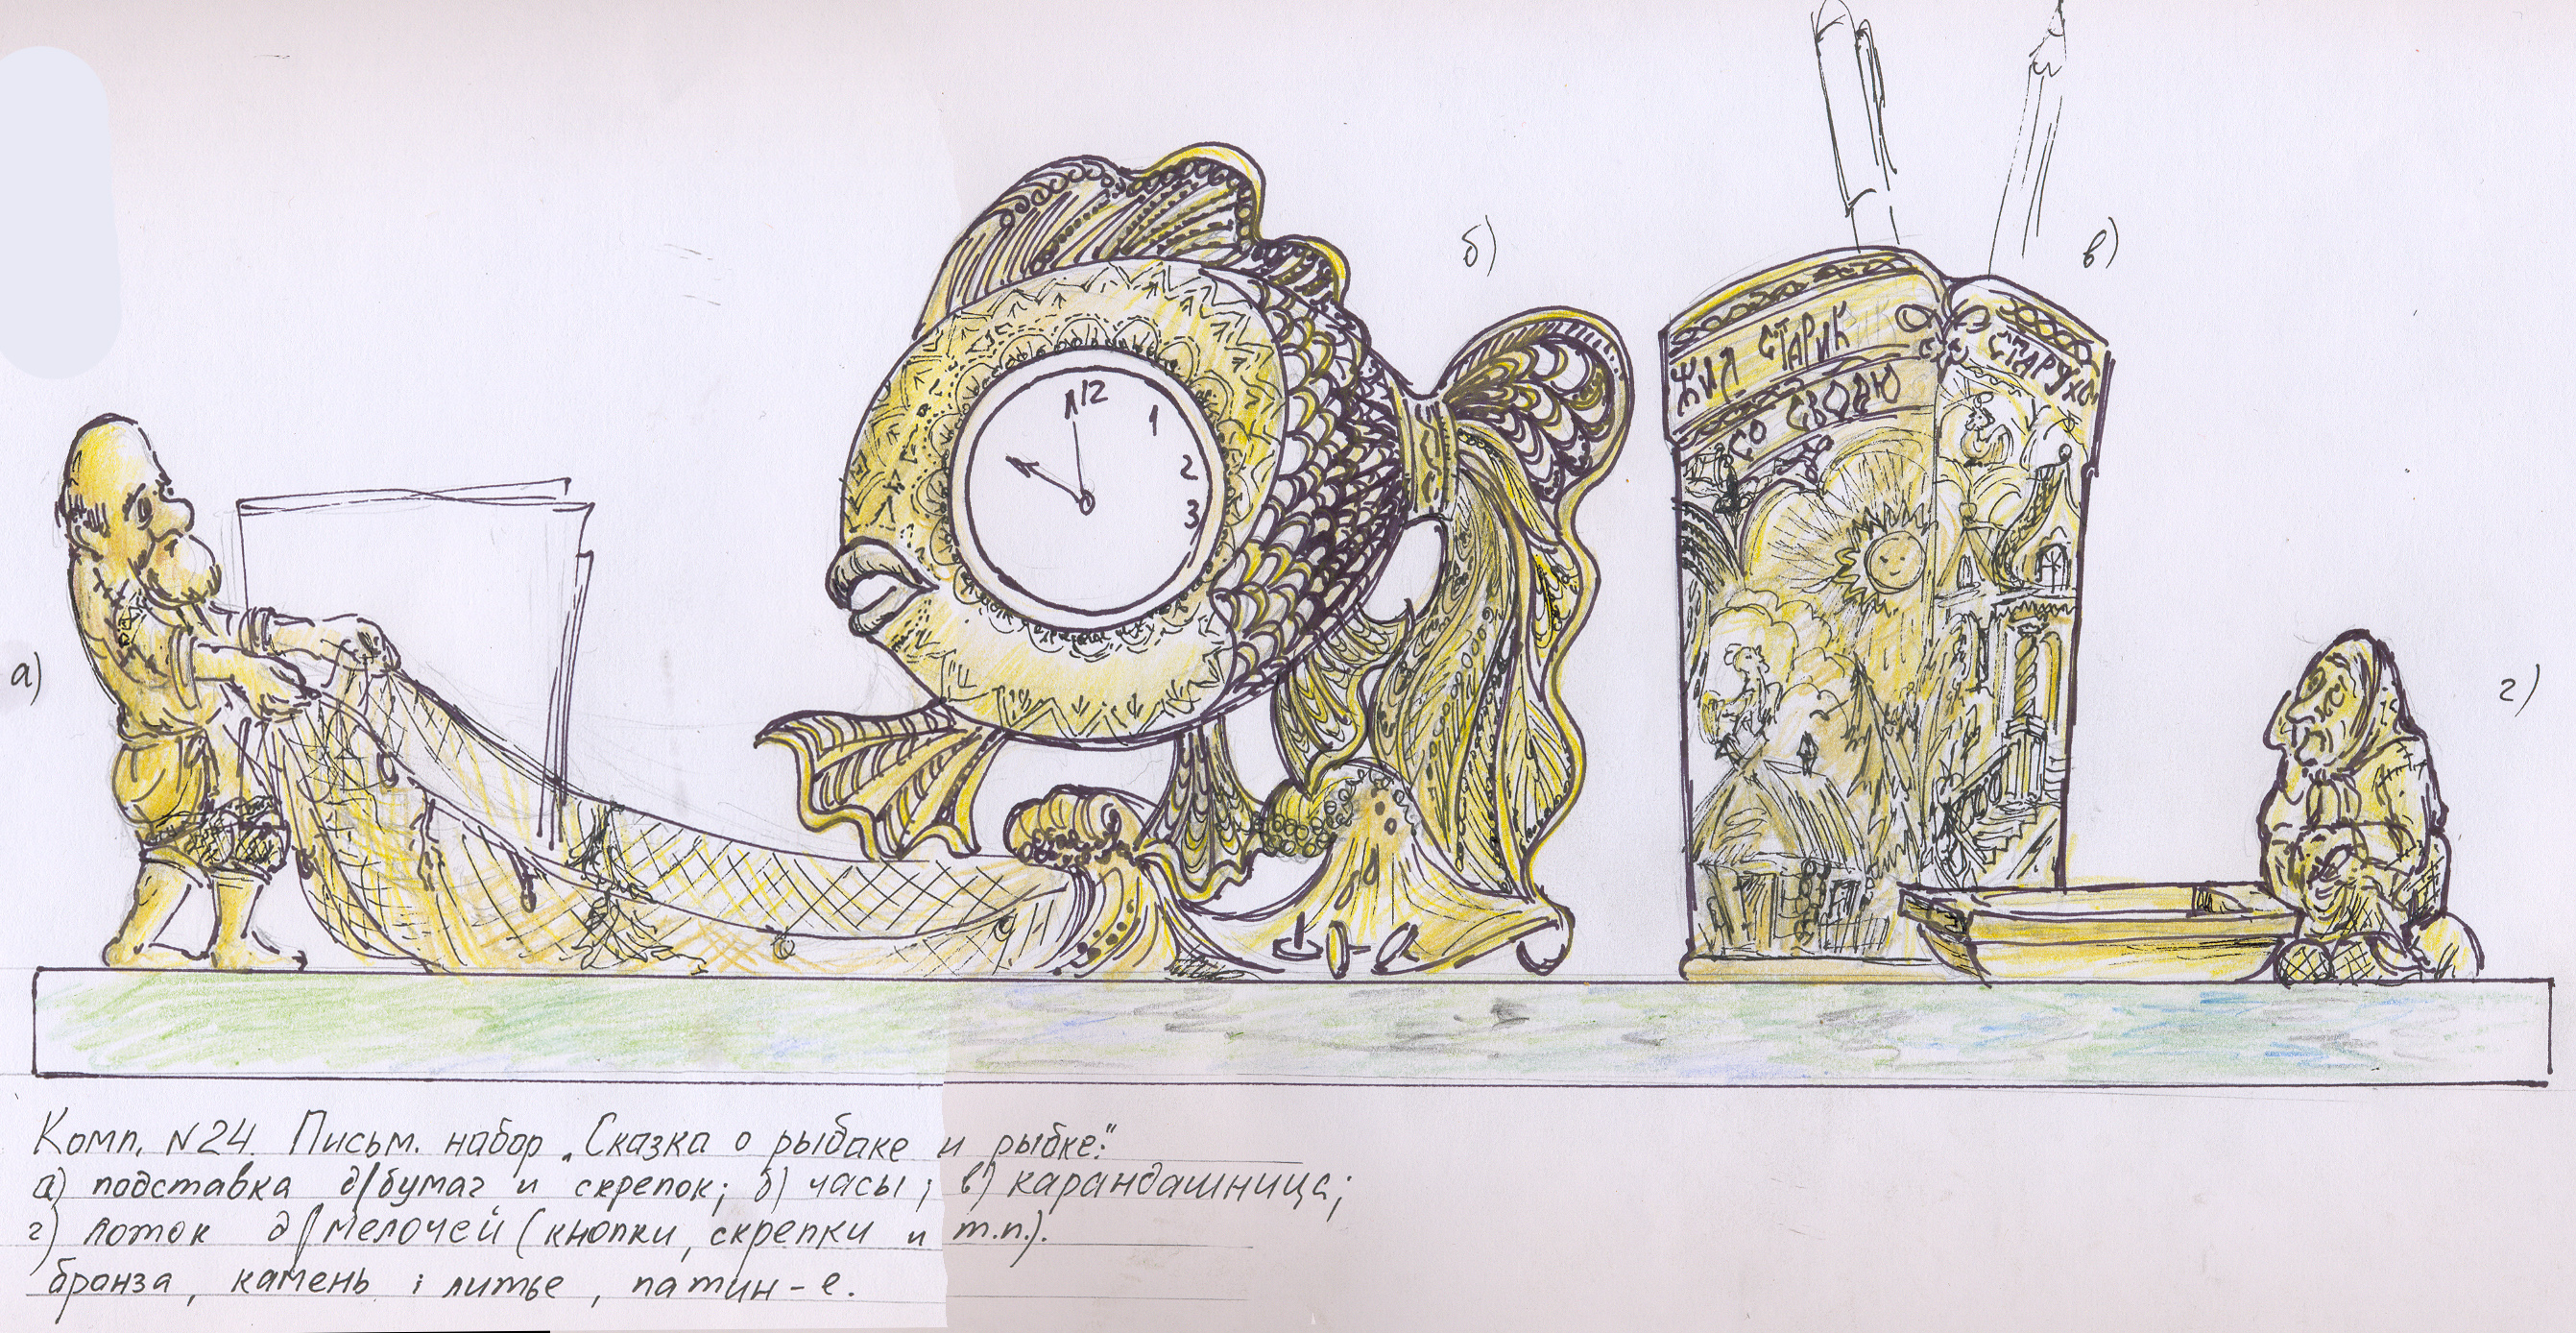 б)
в)
ЖИЛ СТАРИК
СО СВОЕЮ
СТАРУХОЙ
12
1
2
3
а)
г)
Комп. №24. Письм. набор „Сказка о рыбаке и рыбке:"
а) подставка д/бумаг и скрепок; б) часы; в) карандашница;
г) лоток д/мелочей (кнопки, скрепки и т.п.).
бронза, камень; литье, патин-е.